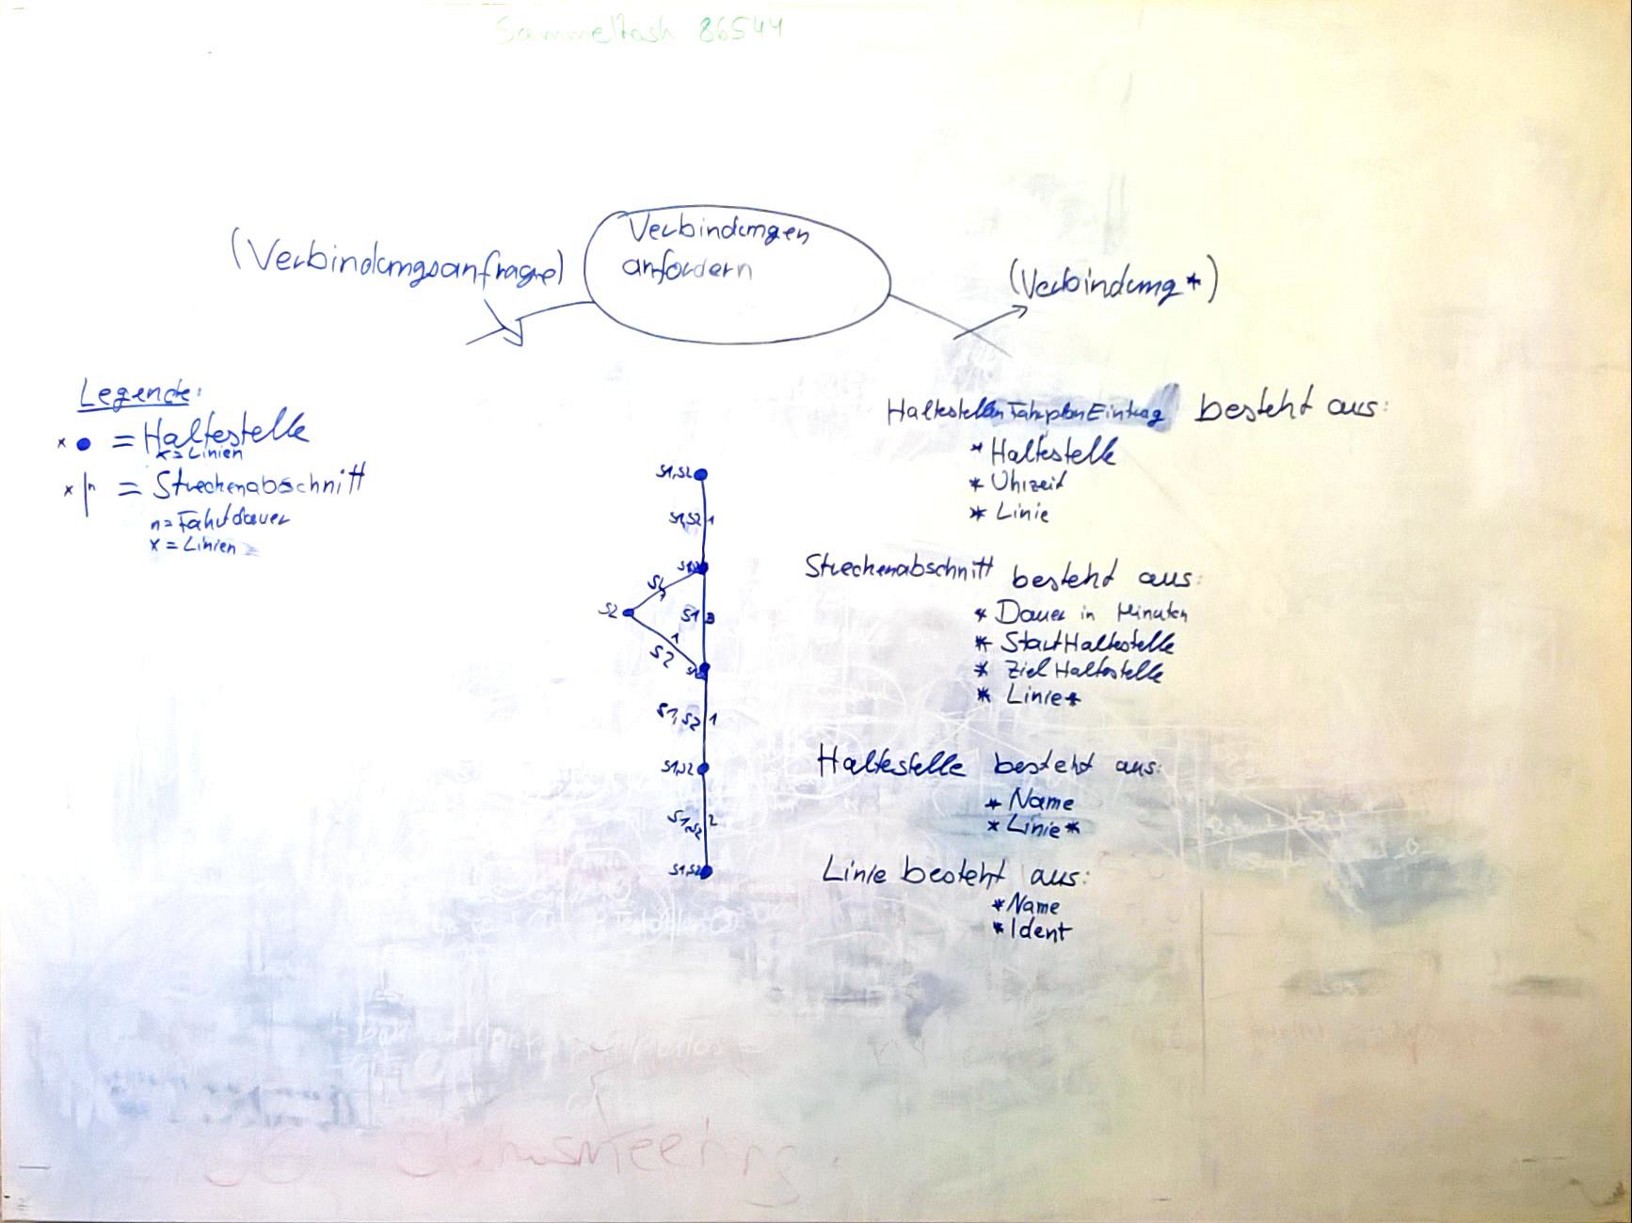 Sammeltask 86544
(Verbindungsanfrage)
Verbindungen
anfordern
(Verbindung*)
Legende:
x ● = Haltestelle
x = Linien
x | n = Streckenabschnitt
n = Fahrtdauer
x = Linien
S1,S2
S1,S2 1
S2
S1 3
1
S2
S1,S2 1
S1,S2
S1,S2 2
S1,S2
HaltestellenFahrplanEintrag besteht aus:
* Haltestelle
* Uhrzeit
* Linie
Streckenabschnitt besteht aus:
* Dauer in Minuten
* StartHaltestelle
* ZielHaltestelle
* Linie*
Haltestelle besteht aus:
* Name
* Linie*
Linie besteht aus:
* Name
* Ident
Statusmeeting